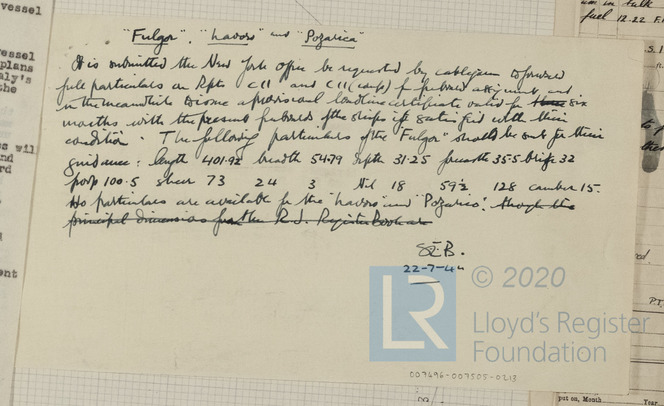 vessel
"Fulgor", "Lavoro" and "Pozarica"
It is submitted the New York Office be requested by cablegram to forward
full particulars on Rpts C11 and C11 (comp) for freeboard assignment, and
in the meantime to issue a provisional loadline certificate valid for three six
months with the present freeboards of the ships if satisfied with their
condition. The following particulars of the "Fulgor" should be sent for their
guidance: length 401.92 breadth 54.79 depth 31.25 35.5 bridge 32
poop 100.5 sheer 73 24 3 Nil 18 59½ 128 camber 15.
No particulars are available for the "Lavoro" and "Pozarica". though the
principal dimensions from the R.I. Register Book are
22-7-44
LR
© 2020
Lloyd's Register
Foundation
007496-007505-0213
vessel
plans
aly's
the
wil
nd
rd
ent
fuel 12.22
put on, Month
Year